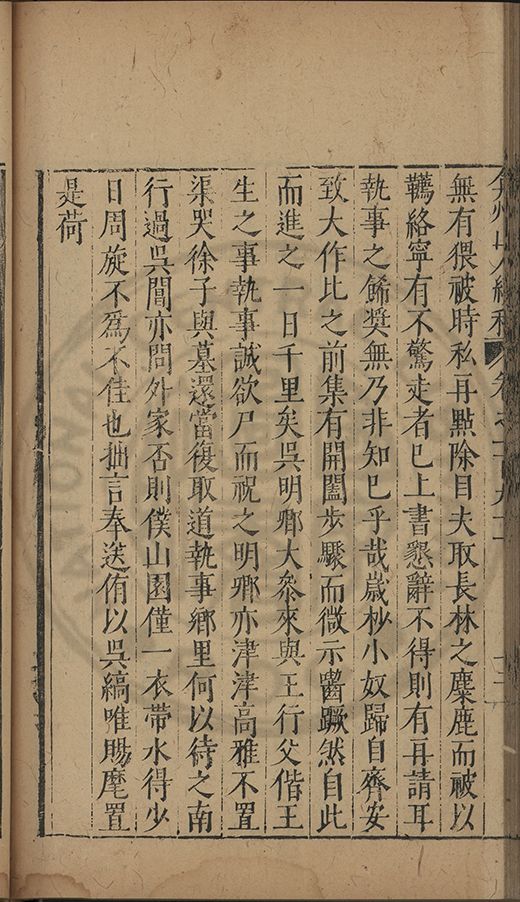 弇州山人續稿 卷之一百九十二 十二
無有猥被時私再點除目夫取長林之麋鹿而被以
鞿絡寧有不驚走者已上書懇辭不得則有再請耳
執事之餙奬無乃非知巳乎哉歲杪小奴歸自齊安
致大作比之前集有開闔步驟而微示齧蹶然自此
而進之一日千里矣吳明卿大叅來與王行父偕王
生之事執事誠欲尸而祝之明卿亦津津高雅不置
渠哭徐子與墓還當復取道執事鄉里何以待之南
行過吳閶亦問外家否則僕山園僅一衣帶水得少
日周旋不爲不佳也拙言奉送侑以吳縞唯賜麾置
是荷